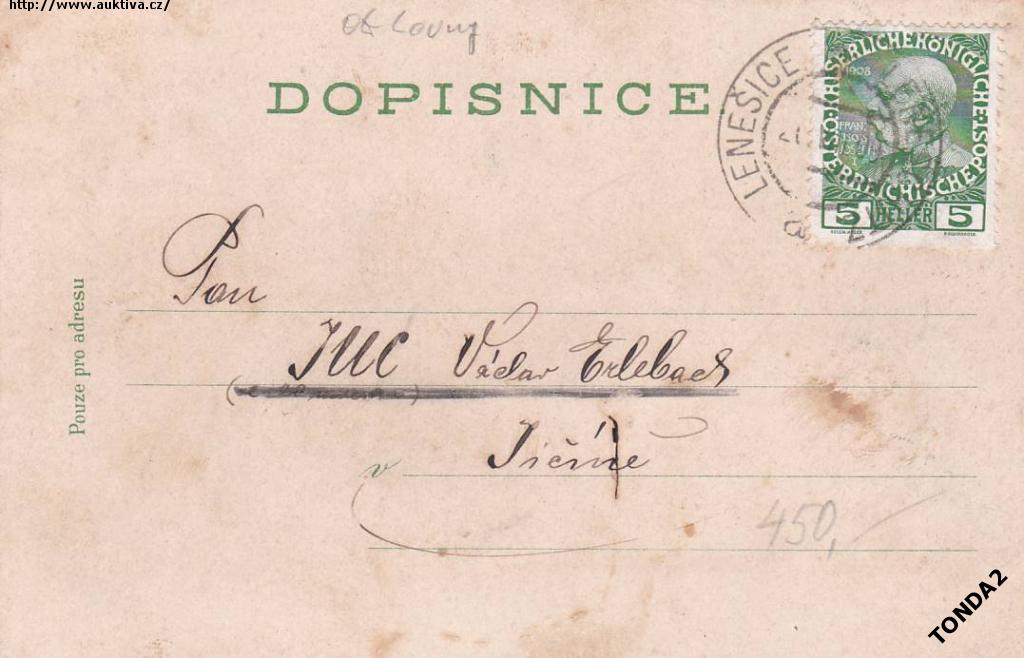 http://www.auktiva.cz/
DOPISNICE
LENEŠICE
KAISERLICHE KÖNIGLICHE ÖSTERREICHISCHE POST
1908
FRANZ
5 HELLER 5
Pan
JUC Václav Erlebach
v Jičíně
Pouze pro adresu
450,-
TONDA2